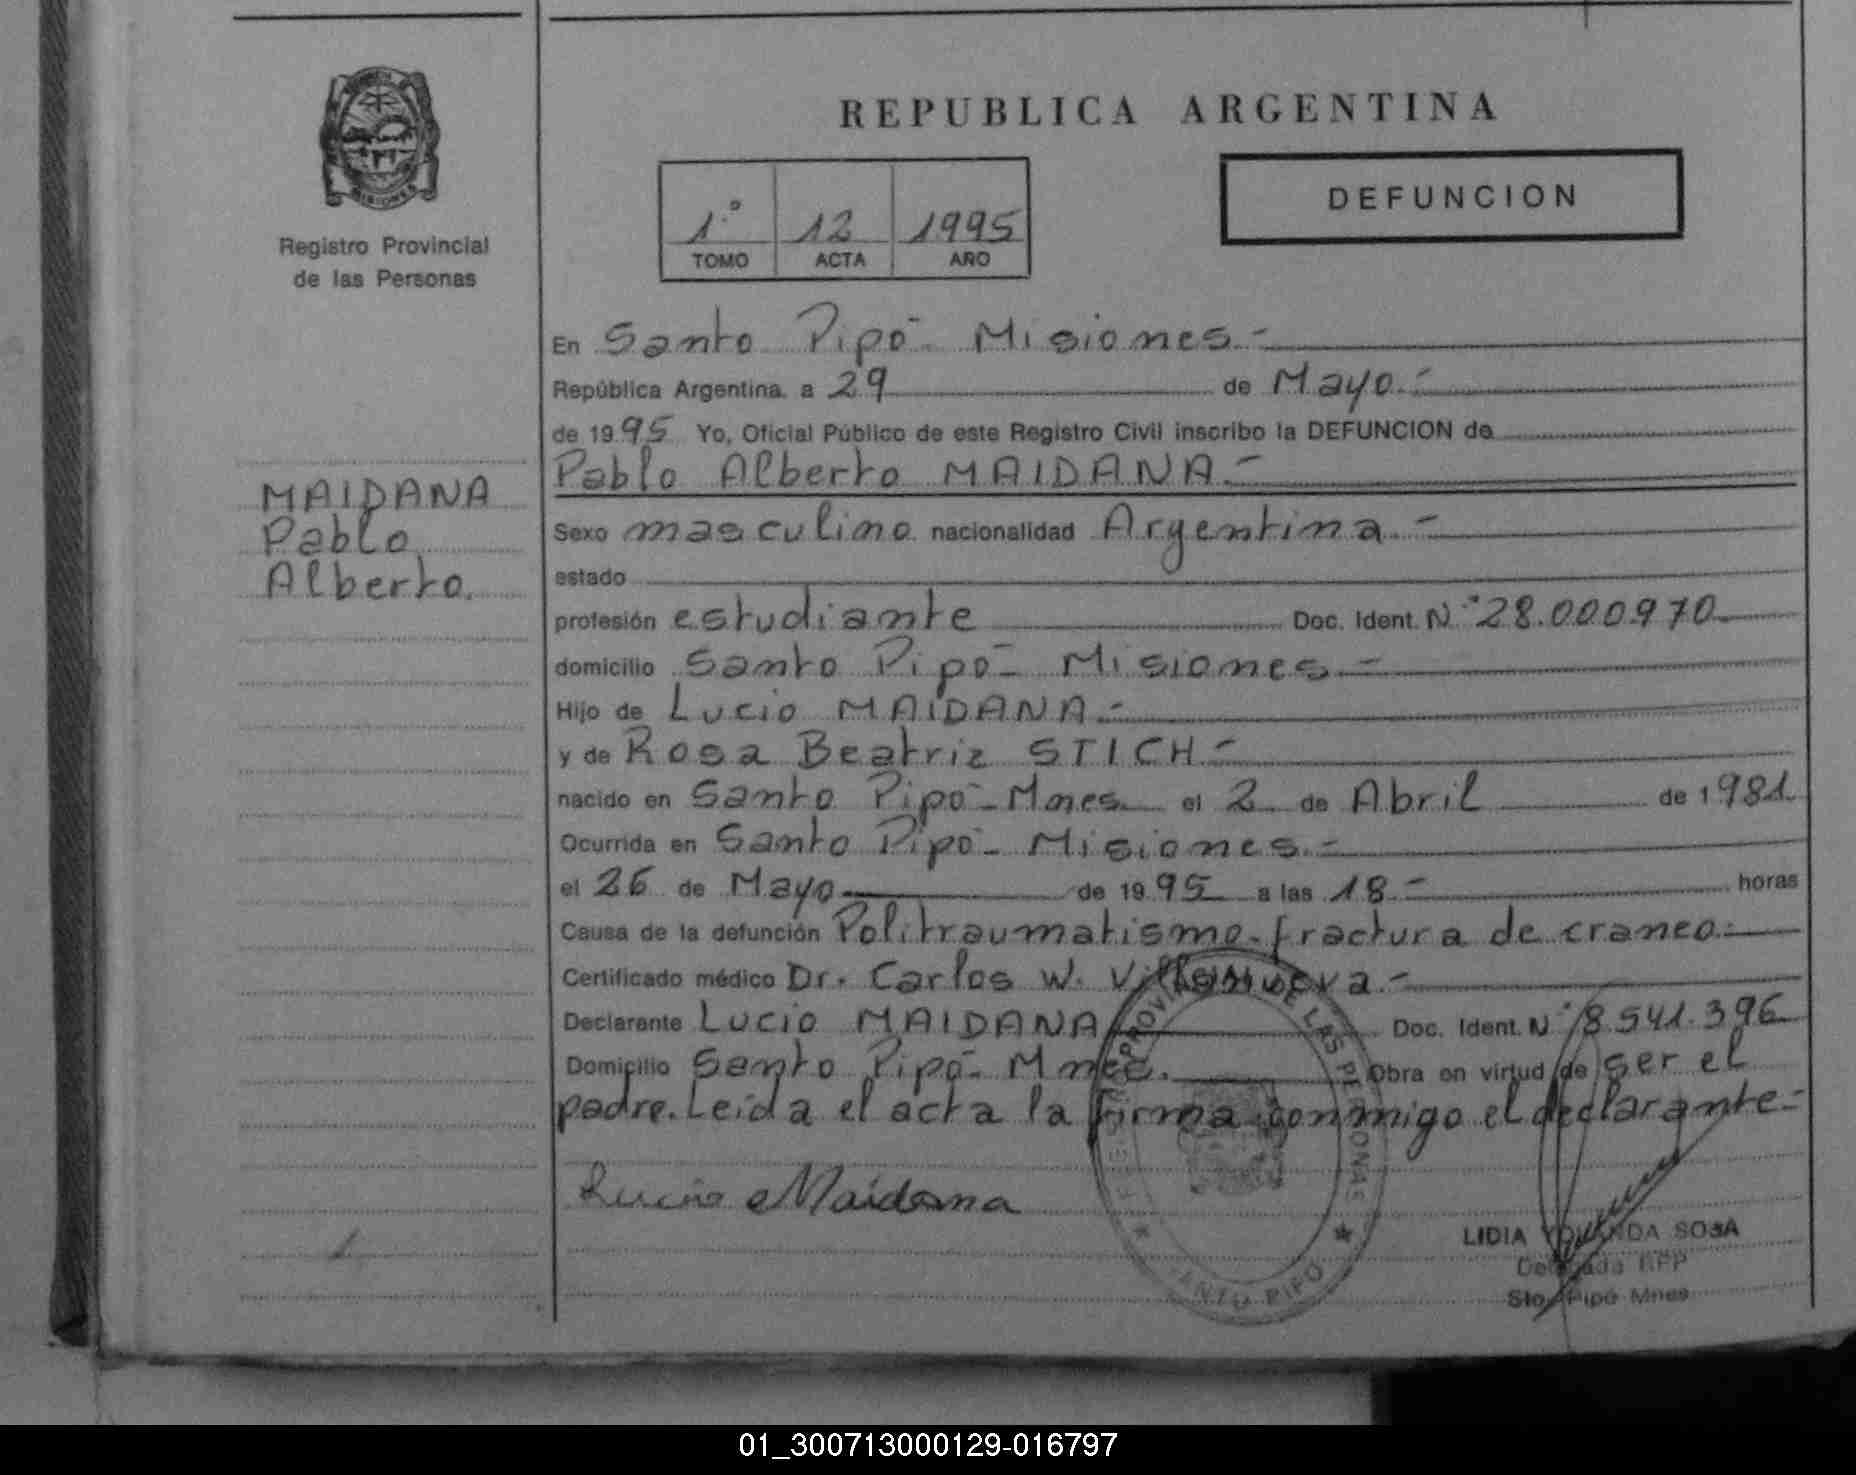 REPUBLICA ARGENTINA
MISIONES
Registro Provincial
de las Personas
1º 12 1995
TOMO ACTA AÑO
DEFUNCION
MAIDANA
Pablo
Alberto.
En Santo Pipó - Misiones.-
República Argentina, a 29 de Mayo.-
de 1995 Yo, Oficial Público de este Registro Civil inscribo la DEFUNCION de
Pablo Alberto MAIDANA.-
Sexo masculino nacionalidad Argentina.-
estado
profesión estudiante Doc. Ident. Nº 28.000.970
domicilio Santo Pipó - Misiones.-
Hijo de Lucio MAIDANA.-
y de Rosa Beatriz STICH.-
nacido en Santo Pipó - Mnes. el 2 de Abril de 1981
Ocurrida en Santo Pipó - Misiones.-
el 26 de Mayo de 1995 a las 18.- horas
Causa de la defunción Politraumatismo - fractura de craneo.-
Certificado médico Dr. Carlos W. Villanueva.-
Declarante Lucio MAIDANA Doc. Ident. Nº 8.541.396
Domicilio Santo Pipó - Mnes. Obra en virtud de ser el
padre. Leida el acta la firma conmigo el declarante.-
Lucio Maidana
PROVINCIAL DE LAS PERSONAS
SANTO PIPO
LIDIA YOLANDA SOSA
Delegada RPP
Sto. Pipó Mnes
01_300713000129-016797